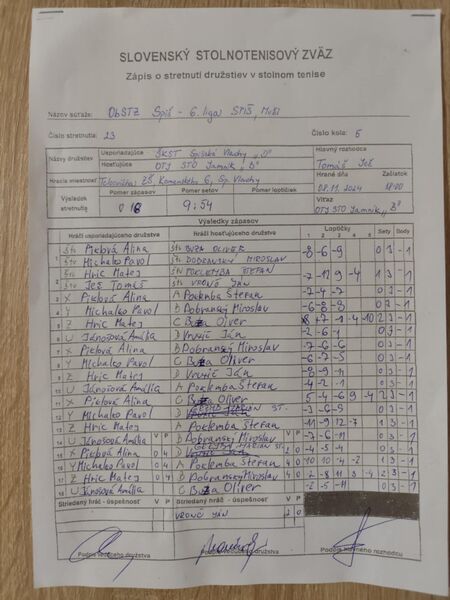 SLOVENSKÝ STOLNOTENISOVÝ ZVÄZ
Zápis o stretnutí družstiev v stolnom tenise
Názov súťaže: ObSTZ Spiš - 6. liga SPIŠ, Muži
Číslo stretnutia: 23 Číslo kola: 5
Názov družstiev Usporiadajúce ŠKST Spišské Vlachy "D" Hlavný rozhodca
Hosťujúce OTJ STO Jamník "B" Tomáš Ješ
Hracia miestnosť Telocvičňa ZŠ, Komenského 6, Sp. Vlachy Hrané dňa Začiatok
Výsledok stretnutia Pomer zápasov Pomer setov Pomer loptičiek 08.11.2024 18:00
Víťaz
9:54 OTJ STO Jamník "B"
Výsledky zápasov
Hráči usporiadajúceho družstva Hráči hosťujúceho družstva Loptičky Sety Body
1 2 3 4 5
1 Štv Picľová Alina Štv BUZA OLIVER -8 -6 -9
Štv Michalko Pavol Štv DOBRANSKÝ MIROSLAV
2 Štv Hric Matej Štv POKLEMBA ŠTEFAN -7 -12 9 -4 1 3 - 1
Štv Ješ Tomáš Štv VRONČ JÁN
3 X Picľová Alina A Poklemba Štefan -7 -4 -7 0 3 - 1
4 Y Michalko Pavol B Dobranský Miroslav -6 -8 -8 0 3 - 1
5 Z Hric Matej C Buza Oliver 2 3 - 1
6 U Jánošová Amália D Vronč Ján -2 -6 -1 0 3 - 1
7 X Picľová Alina B Dobranský Miroslav -7 -6 -6 0 3 - 1
8 Y Michalko Pavol C Buza Oliver -6 -7 -5 0 3 - 1
9 Z Hric Matej D Vronč Ján -8 -9 -11 0 3 - 1
10 U Jánošová Amália A Poklemba Štefan -4 -2 -1 0 3 - 1
11 X Picľová Alina C Buza Oliver 5 -4 -6 9 -4 2 3 - 1
12 Y Michalko Pavol D -3 -6 -9 0 3 - 1
13 Z Hric Matej A Poklemba Štefan -11 -9 12 -7 1 3 - 1
14 U Jánošová Amália V P B Dobranský Miroslav V P -7 -6 -11 0 3 - 1
15 X Picľová Alina 0 4 D 2 0 -4 -5 -4 0 3 - 1
16 Y Michalko Pavol 0 4 A Poklemba Štefan 4 0 10 10 -4 -2 1 3 - 1
17 Z Hric Matej 0 4 B Dobranský Miroslav 4 0 2 3 - 1
18 U Jánošová Amália 0 4 C Buza Oliver 4 0 -2 -5 -11 0 3 - 1
Striedaný hráč - úspešnosť V P Striedaný hráč - úspešnosť V P
VRONČ JÁN 2 0
Podpis vedúceho družstva Podpis vedúceho družstva Podpis hlavného rozhodcu